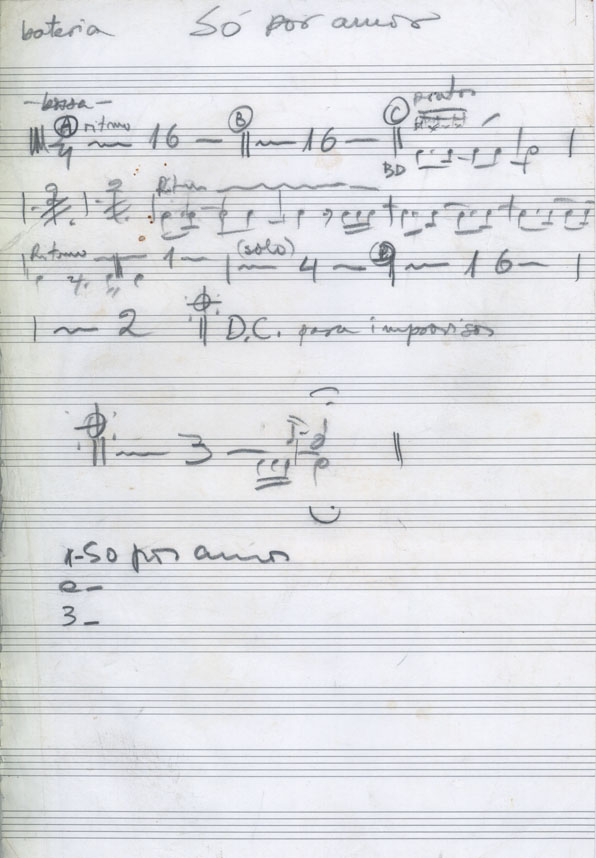 bateria Só por amor
- bossa - pratos
A ritmo 16 B 16 C
4 BD
Ritmo
Ritmo 1 (solo) 4 D 16
2 D.C. para improvisos
3
1-Só por amor
2-
3-